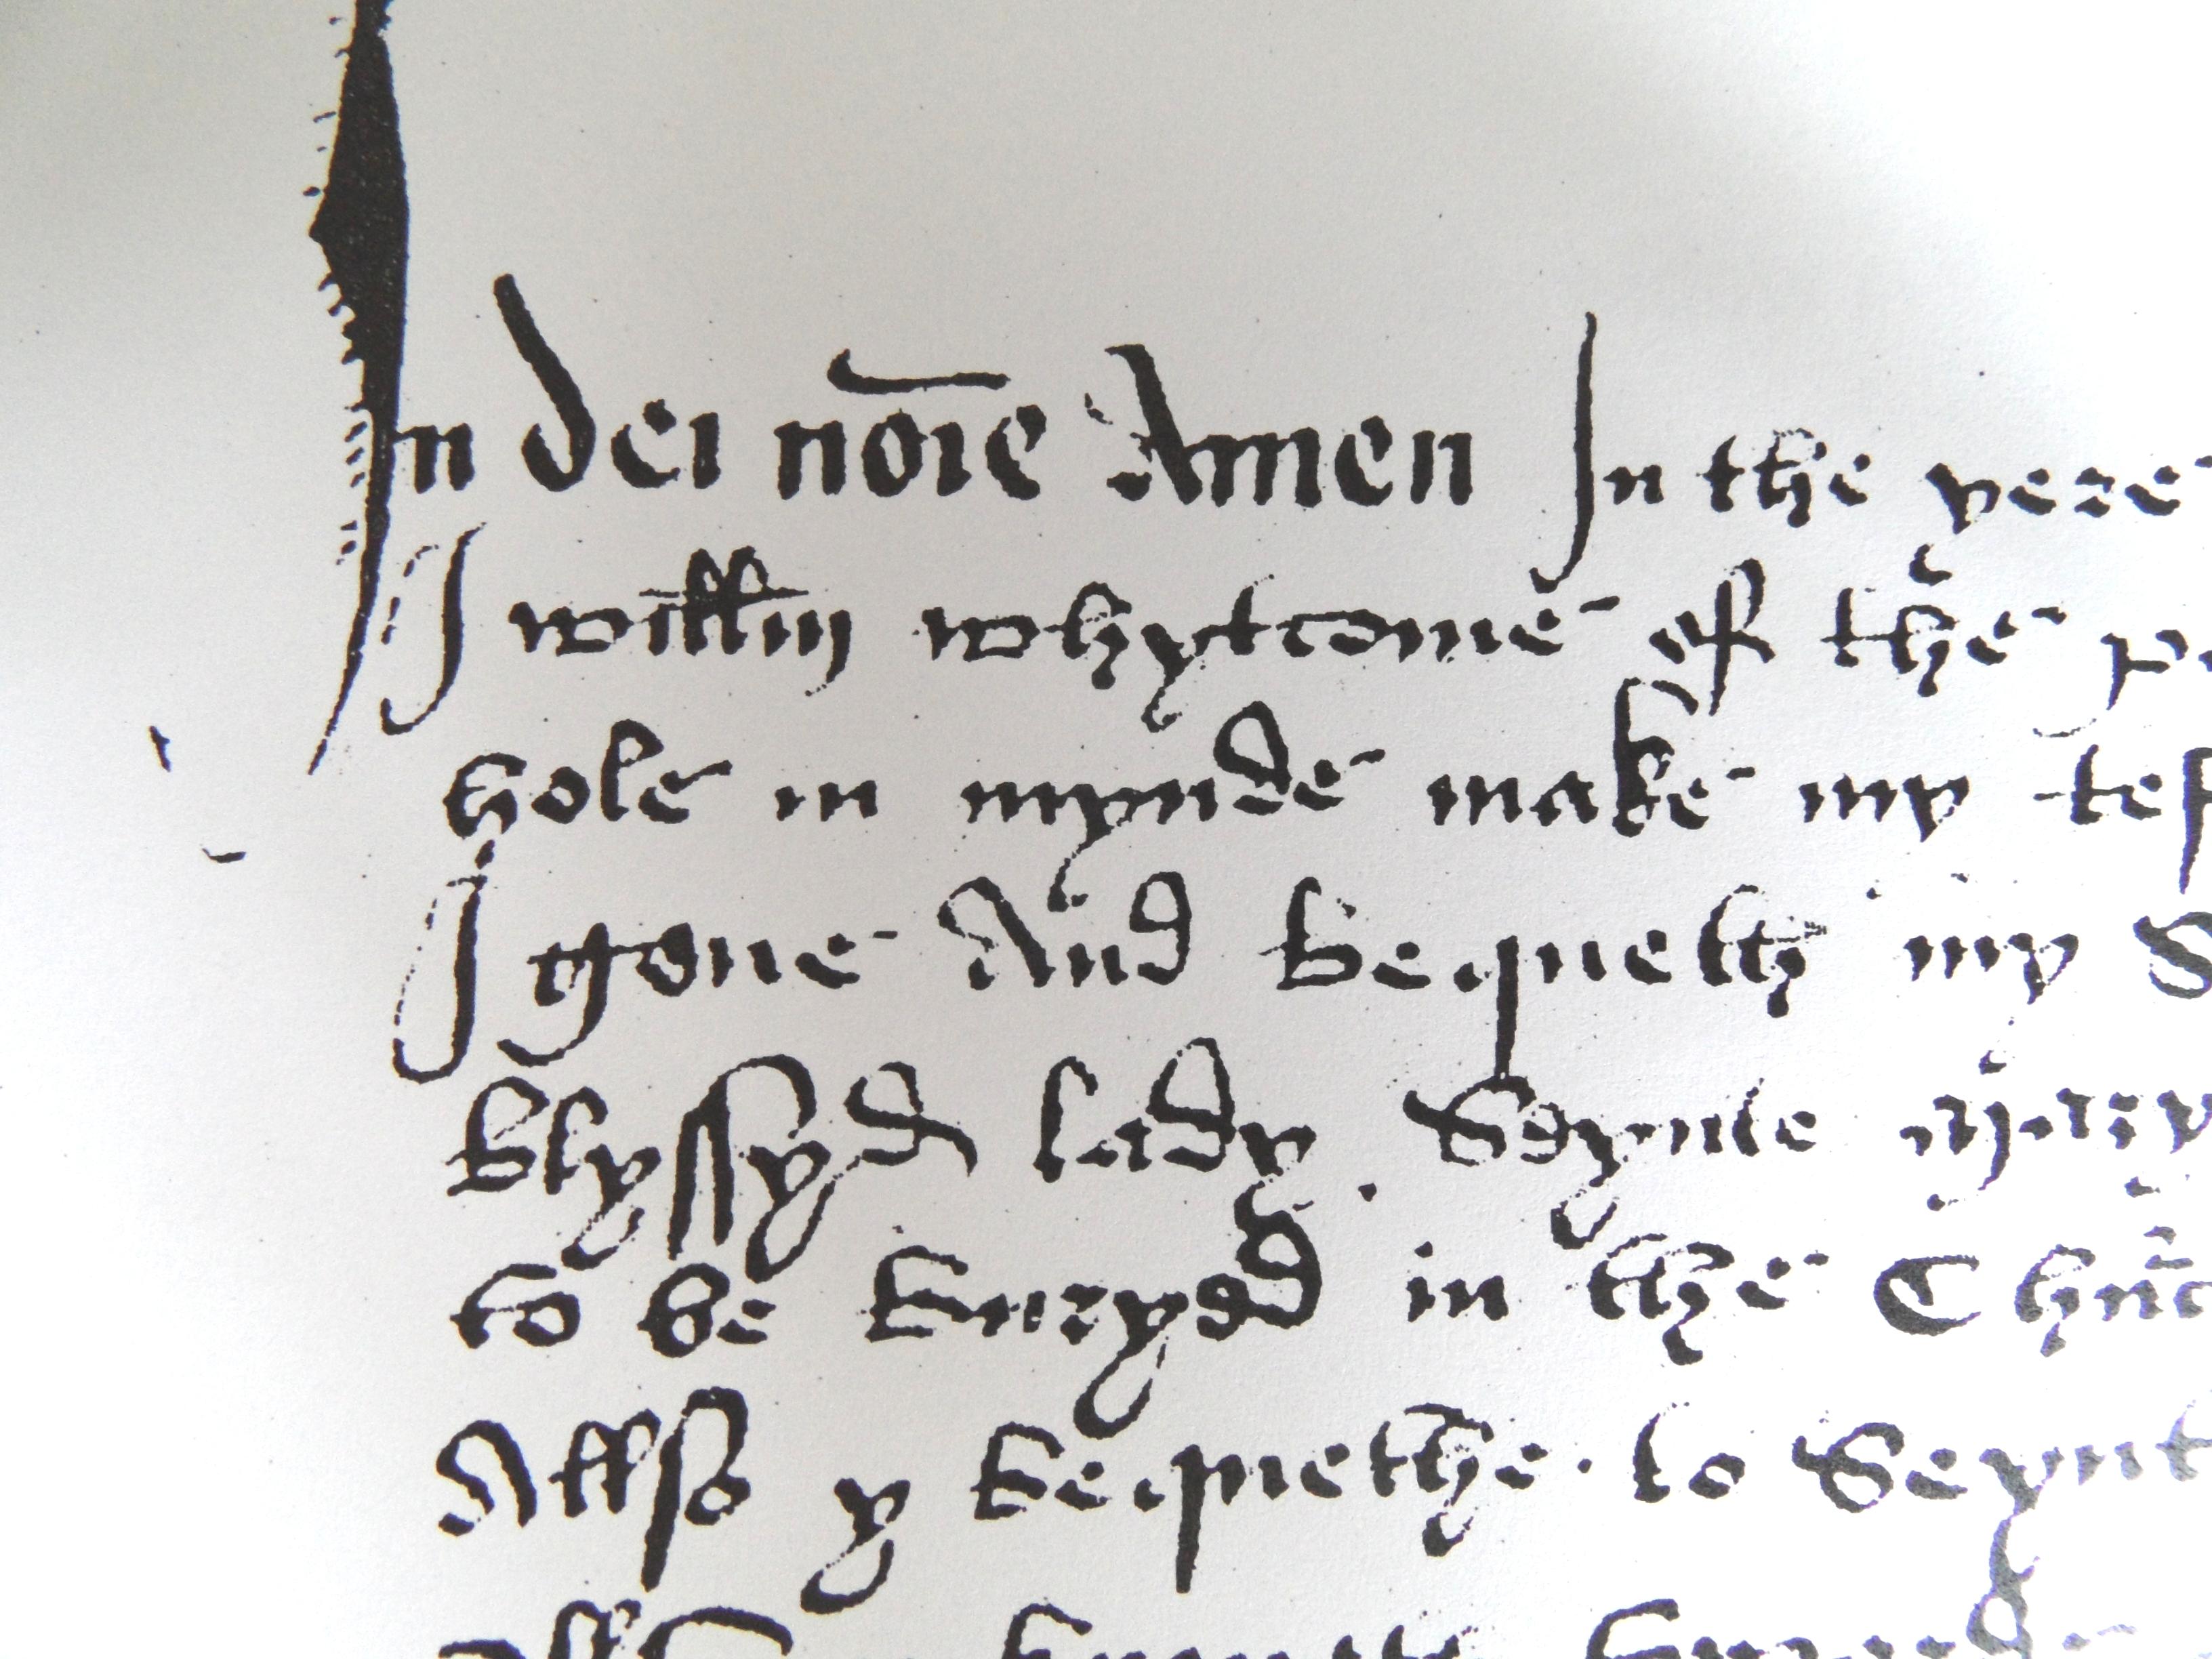 In dei noīe Amen In the yere
I willm whytcome of the
hole in mynde make my tes
I gone And bequeth my S
blyssyd lady Seynte Mary
to be buryed in the Chur
Allso y bequethe to Seynt